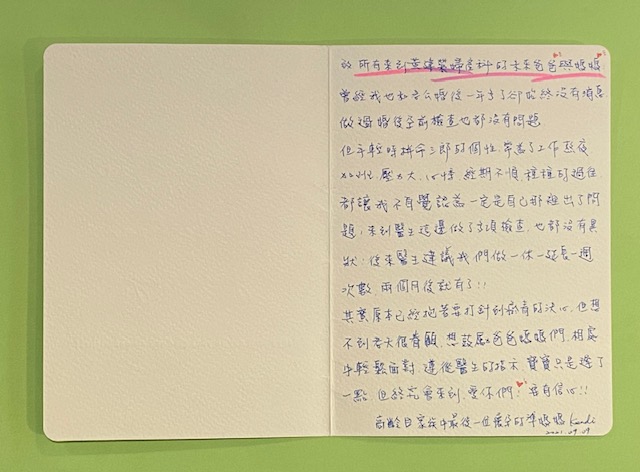 致 所有來到黃建榮婦產科的未來爸爸與媽媽
曾經我也和老公婚後一年多了卻始終沒有消息
做過婚後孕前檢查也都沒有問題
但年輕時拚命三郎的個性,常為了工作熬夜
加班,壓力大、心悸、經期不順,種種的過往
都讓我不自覺認為一定是自己那裡出了問
題,來到醫生這邊做了多項檢查,也都沒有異
狀;後來醫生建議我們做一休一延長一週
次數,兩個月後就有了!!
其實原本已經抱著要打針到痛哭的決心,但想
不到老天很眷顧,想鼓勵爸爸媽媽們,相處
中輕鬆面對,遵從醫生的指示,寶寶只是遲了
一點,但終究會來到,愛你們!要有信心!!
高齡且家族中最後一位懷孕的準媽媽 Kandi
2021.09.09